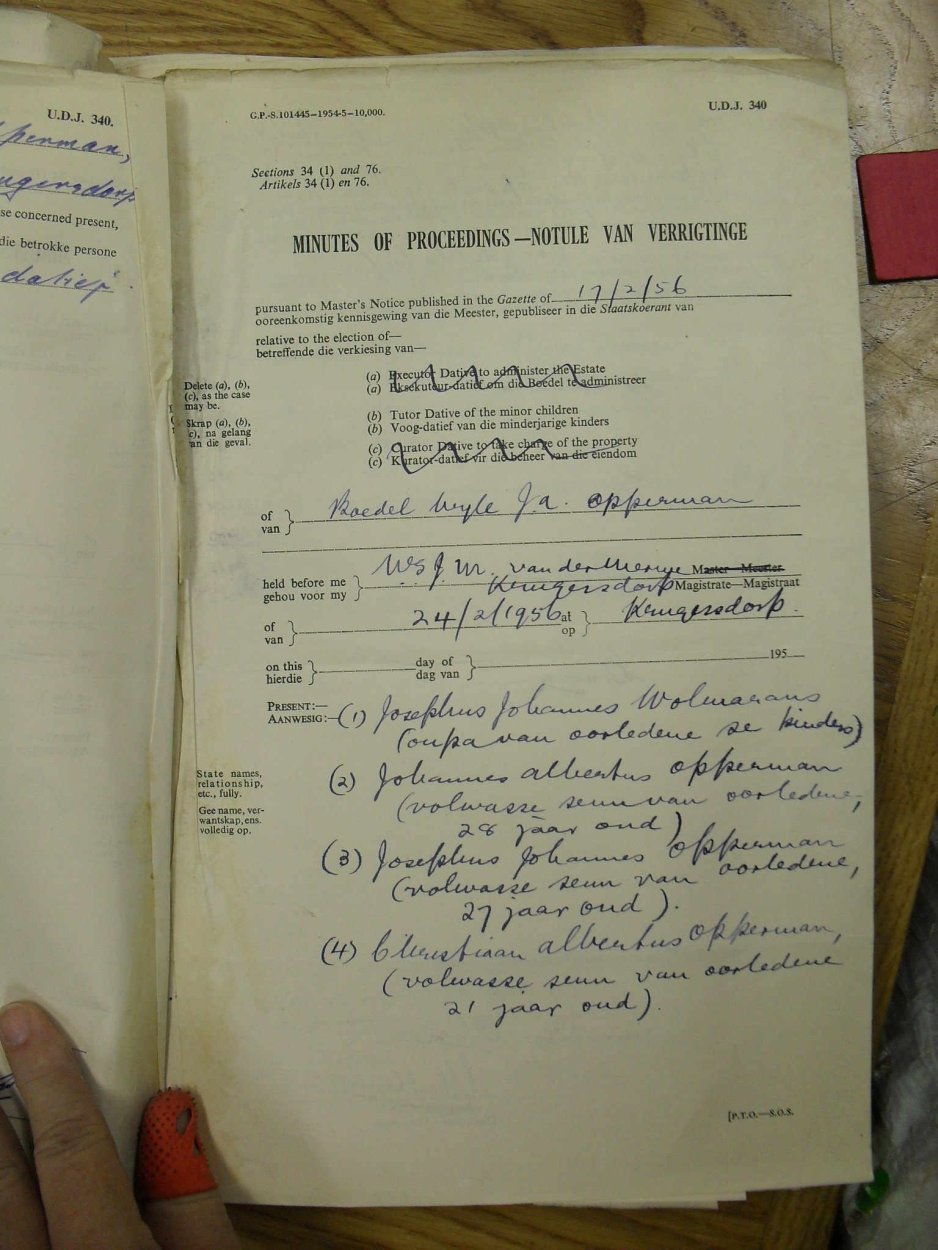 U.D.J. 340.
perman,
ugersdorp
se concerned present,
die betrokke persone
datief.
G.P.-S.101445—1954-5—10,000.
U.D.J. 340
Sections 34 (1) and 76.
Artikels 34 (1) en 76.
MINUTES OF PROCEEDINGS—NOTULE VAN VERRIGTINGE
pursuant to Master's Notice published in the Gazette of 17/2/56
ooreenkomstig kennisgewing van die Meester, gepubliseer in die Staatskoerant van
relative to the election of—
betreffende die verkiesing van—
Delete (a), (b),
(c), as the case
may be.
Skrap (a), (b),
(c), na gelang
van die geval.
(a) Executor Dative to administer the Estate
(a) Eksekuteur-datief om die Boedel te administreer
(b) Tutor Dative of the minor children
(b) Voog-datief van die minderjarige kinders
(c) Curator Dative to take charge of the property
(c) Kurator-datief vir die beheer van die eiendom
of
van } Boedel wyle J.A. Opperman
held before me
gehou voor my } W.S.J.M. van der Merwe Master—Meester
Krugersdorp Magistrate—Magistraat
of
van } 24/2/1956 at
op } Krugersdorp.
on this
hierdie } day of
dag van } 195
PRESENT:—
AANWESIG:— (1) Josephus Johannes Wolmarans
(oupa van oorledene se kinders)
State names,
relationship,
etc., fully.
Gee name, ver-
wantskap, ens.
volledig op.
(2) Johannes Albertus Opperman
(volwasse seun van oorledene,
28 jaar oud)
(3) Josephus Johannes Opperman
(volwasse seun van oorledene,
27 jaar oud).
(4) Christiaan Albertus Opperman,
(volwasse seun van oorledene
21 jaar oud).
[P.T.O.—S.O.S.